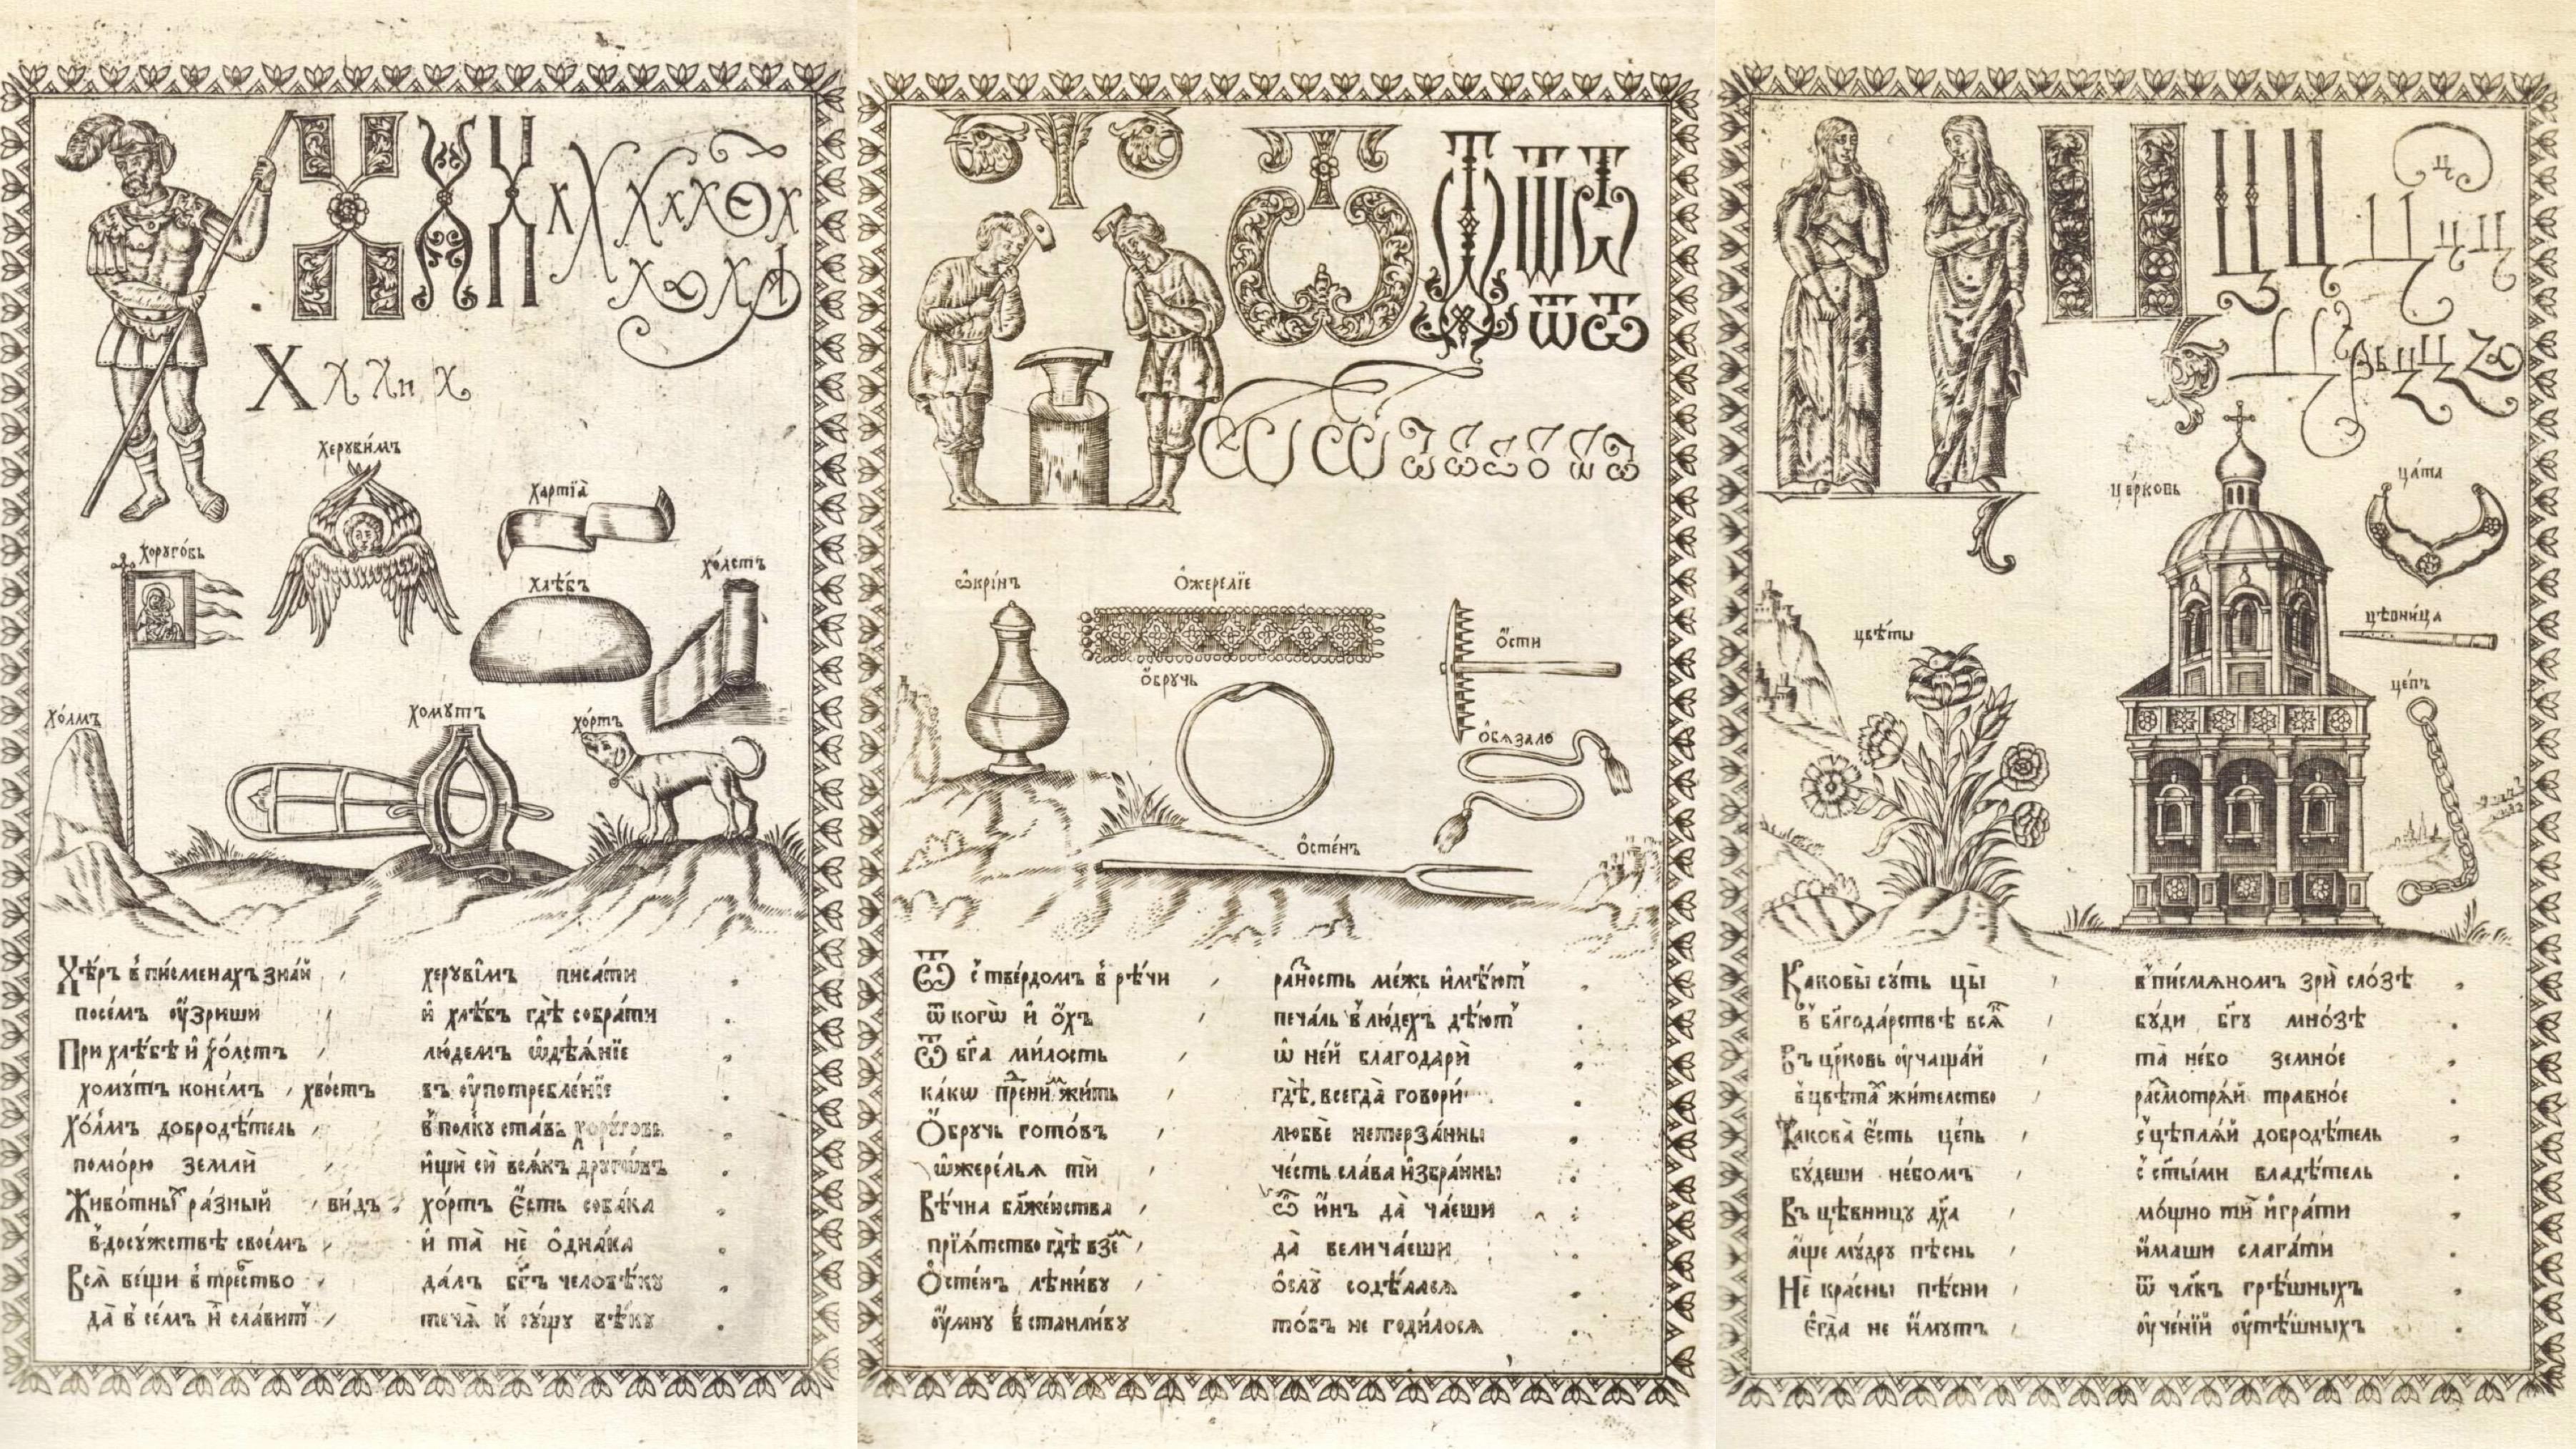 Х Х Х х Х Х х Х Ѳ х
х ѡ х ф
Х Х Хи Х
херꙋви́мъ
хартїа̀
хорꙋго́вь
хлѣ́бъ
хо́лстъ
хо́лмъ
хомꙋ́тъ
хо́ртъ
Хѣ́ръ в̾ пи́сменахъ зна́й , херꙋві́мъ писа́ти .
посе́мъ ᲂу҆́зриши , и҆ хлѣ́бъ гдѣ̀ собра́ти .
При хлѣ́бѣ и҆ хо́лстъ , лю́демъ ѡ҆дѣѧ́нїе .
хомꙋ́тъ коне́мъ , хво́стъ въ ᲂу҆потребле́нїе .
Хо́лмъ добродѣ́тель , в̾ полкꙋ̀ ста́въ хорꙋ́говь .
помо́рю землѝ , и҆щѝ
Живо́тны ра́зный , видъ , хо́ртъ є҆́сть соба́ка .
в̾ досꙋ́жствѣ свое́мъ , и҆ та̀ не ѻ҆дна́ка .
Всѧ̀ ве́щи , да́лъ бг҃ъ человѣ́кꙋ .
да̀ в̾ се́мъ и҆̀ сла́вит , течѧ̀ к̾ сꙋ́щꙋ вѣ́кꙋ .
Ѿ Ѿ Ѿ Ѿ Ѿ
Ѿ Ѿ
ѡ҆крі́нъ
ѻ҆жере́лїе
ѻ҆́сти
ѻ҆́брꙋчь
ѻ҆бѧза́ло
ѻ҆сте́нъ
Ѿ с̾ тве́рдомъ в̾ рѣ́чи , ра́зность ме́жь и҆мѣ́ют .
ѿ когѡ̀ и҆ ѻ҆́хъ , печа́ль в̾ лю́дехъ дѣ́ют .
Ѿ бг҃а ми́лость , ѡ҆ не́й благодарѝ .
ка́кѡ жи́ть , гдѣ̀, всегда̀ говорѝ .
Ѻ҆́брꙋчь гото́въ , любвѐ нетерза́нны .
ѡ҆жере́льѧ тѝ , че́сть сла́ва и҆збра́нны :
Вѣ́чна бл҃же́нства , ѿ и҆́нъ да̀ ча́еши :
прїѧ́тство гдѣ̀ взем , да̀ велича́еши .
Ѻ҆сте́нъ лѣни́вꙋ , ѻ҆слꙋ̀ содѣ́ласѧ .
ᲂу҆́мнꙋ в̾станли́вꙋ то́въ не годи́лосѧ .
Ц Ц Ц Ц Ц ц Ц ц
церковь
ца́та
цвѣ́ты
цѣвни́ца
це́пь
Каковы̀ сꙋ́ть цы̀ , в̾ пи́смѧномъ зрѝ сло́зѣ .
в̾ бл҃года́рствѣ всѧ , бꙋ́ди бг҃ꙋ мно́зѣ .
Въ цр҃ковь ᲂу҆чаща́й , та̀ не́бо земно́е .
в̾ цвѣта́ жи́телство , расмотрѧ́й травно́е .
Какова̀ є҆́сть це́пь , сцѣплѧ́й добродѣ́тель .
бꙋ́деши не́бомъ , с̾ ст҃ы́ми владѣ́тель .
Въ цѣвни́цꙋ дх҃а , мо́щно тѝ и҆гра́ти .
а҆́ще мꙋ́дрꙋ пѣ́снь , и҆́маши слага́ти .
Не кра́сны пѣ́сни , ѿ чл҃къ грѣ́шныхъ .
є҆гда̀ не и҆́мꙋтъ , ᲂу҆че́нїй ᲂу҆тѣ́шныхъ .